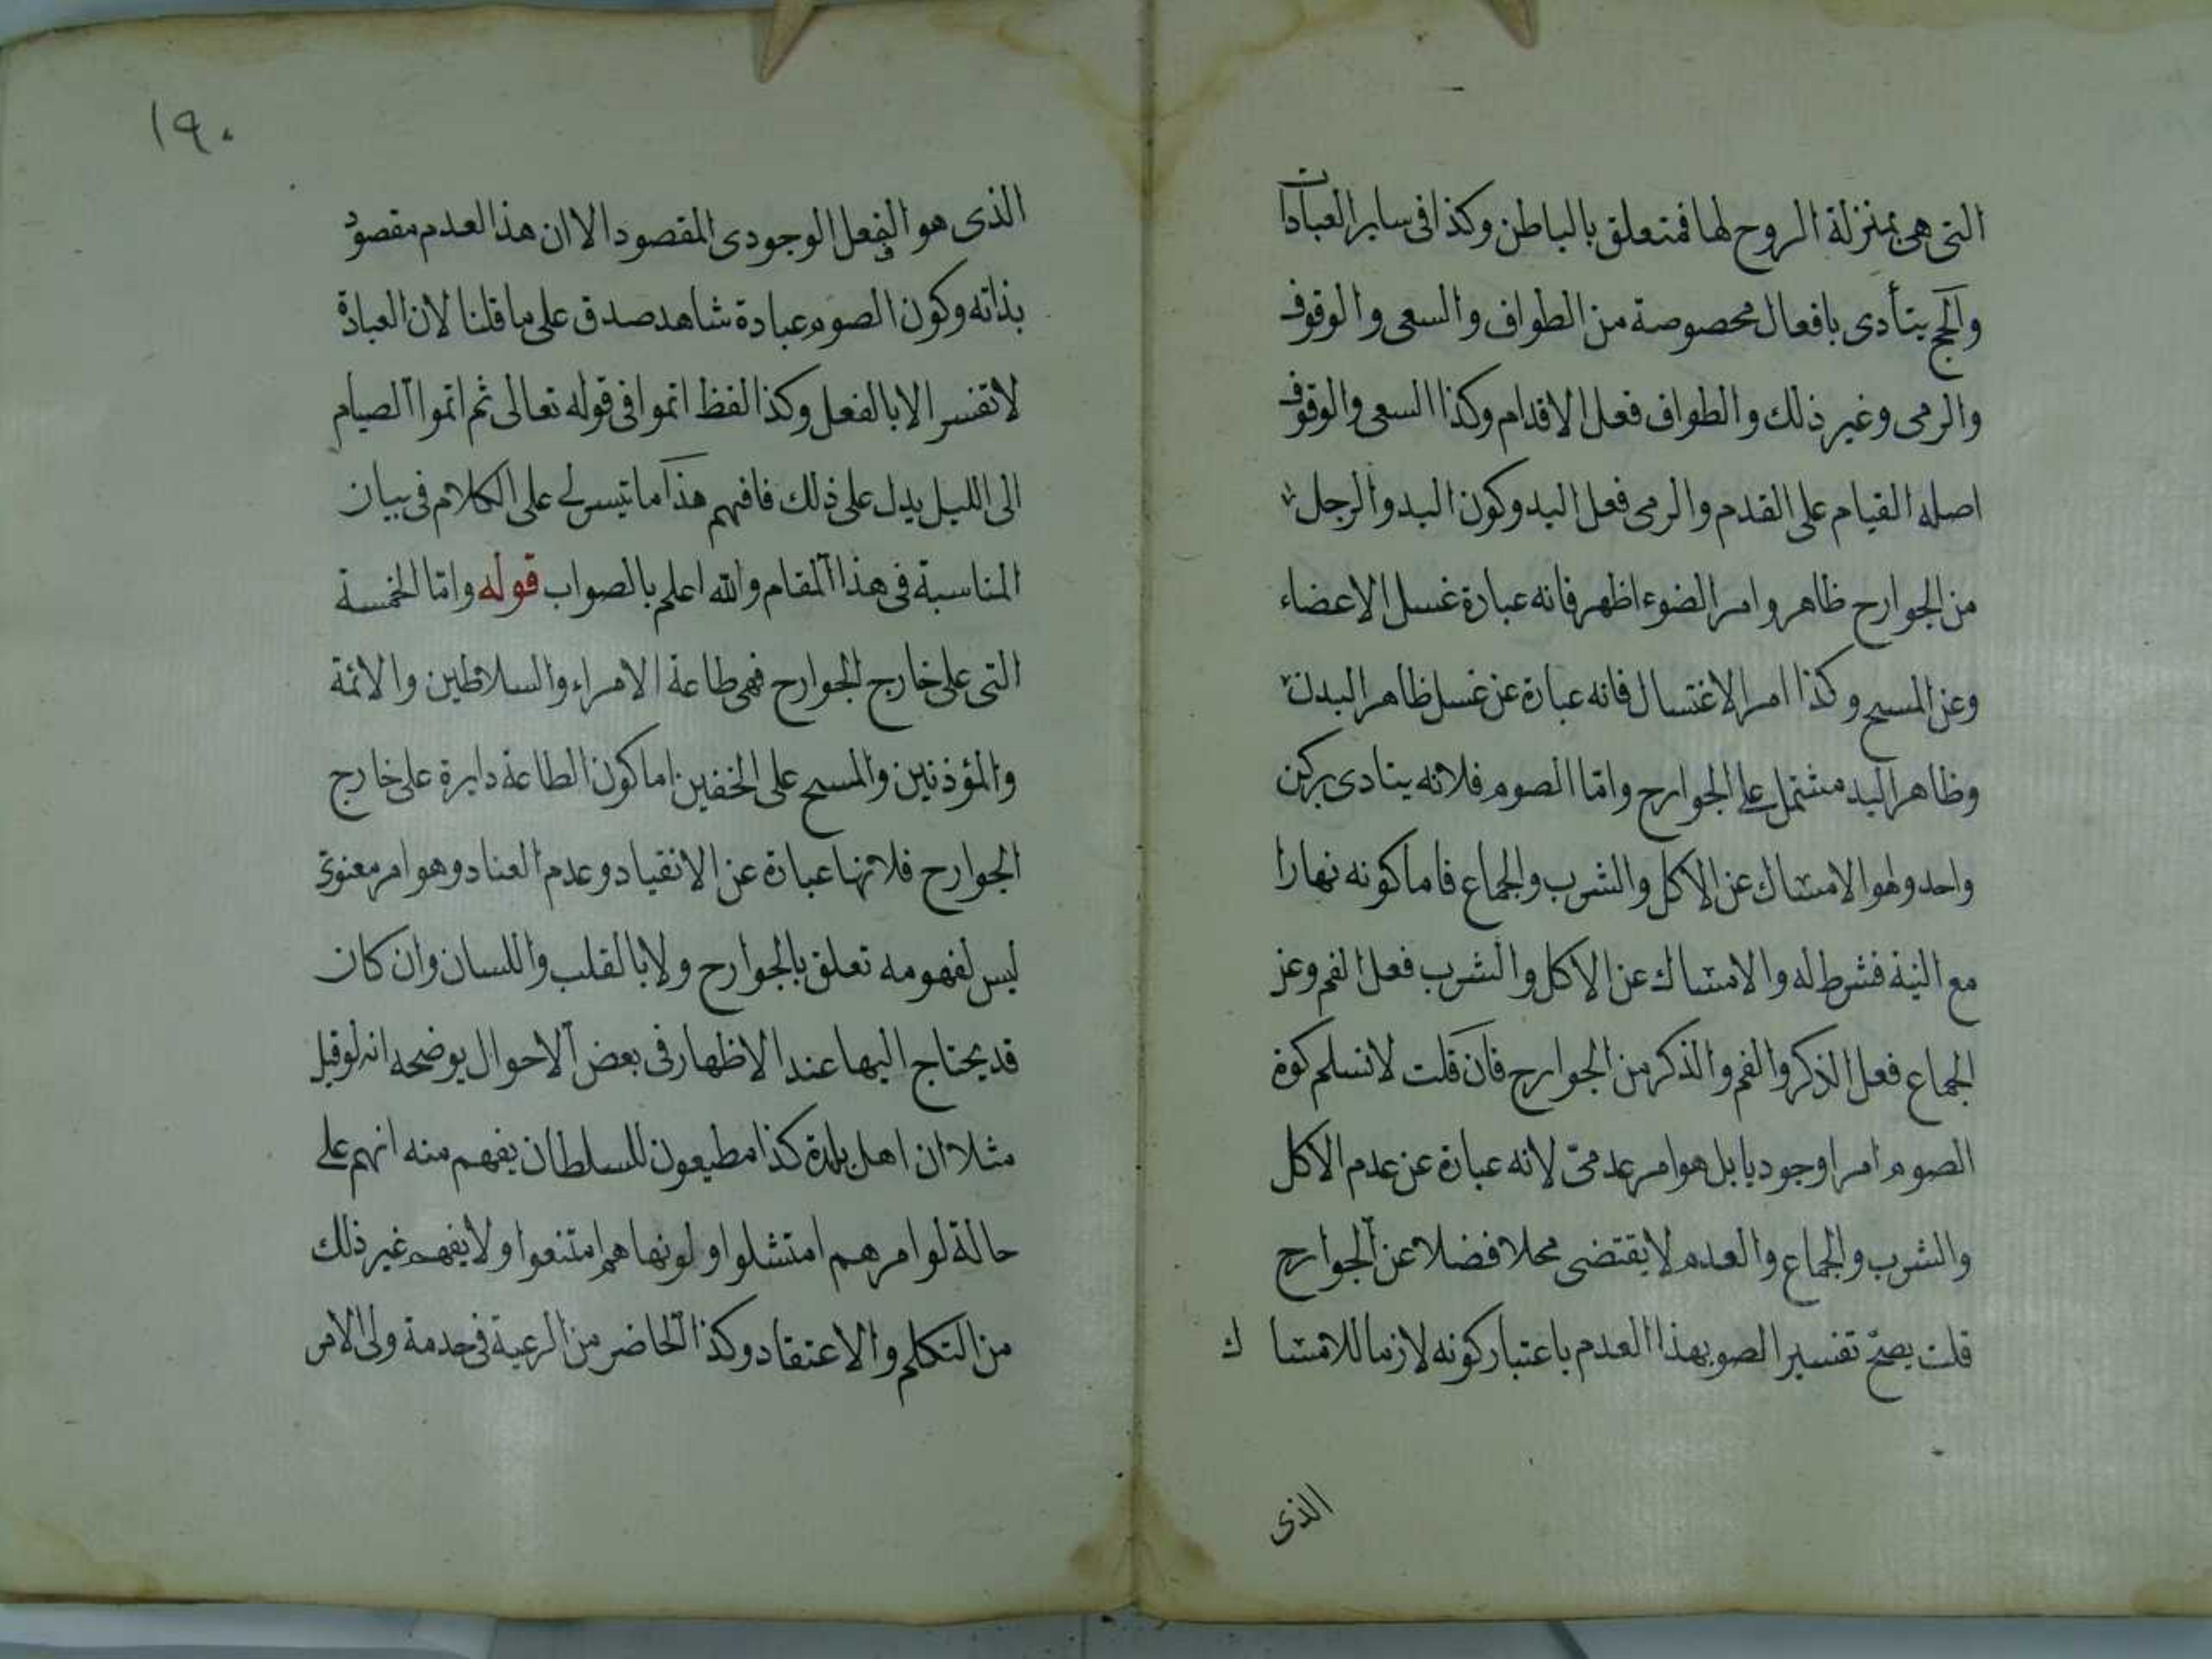 التى هى بمنزلة الروح لها فمتعلق بالباطن وكذا فى ساير العبادات
والحج يتأدى بافعال مخصوصة من الطواف والسعى والوقوف
والرمى وغير ذلك والطواف فعل الاقدام وكذا السعى والوقوف
اصله القيام على القدم والرمى فعل اليد وكون اليد والرجل
من الجوارح ظاهر وامر الضوء اظهر فانه عبارة غسل الاعضاء
وعن المسح وكذا امر الاغتسال فانه عبارة عن غسل ظاهر البدن
وظاهر اليد مشتمل على الجوارح واما الصوم فلانه يتادى بركن
واحد وهو الامساك عن الاكل والشرب والجماع فاما كونه نهارا
مع النية فشرط له والامساك عن الاكل والشرب فعل الفم وعن
الجماع فعل الذكر والفم والذكر من الجوارح فان قلت لانسلم كون
الصوم امرا وجوديا بل هو امر عدمى لانه عبارة عن عدم الاكل
والشرب والجماع والعدم لا يقتضى محلا فضلا عن الجوارح
قلت يصح تفسير الصو بهذا العدم باعتبار كونه لازما للامساك
الذى
١٩٠
الذى هو الفعل الوجودى المقصود الا ان هذا العدم مقصود
بذاته وكون الصوم عبادة شاهد صدق على ما قلنا لان العبادة
لا تفسر الا بالفعل وكذا لفظ اتموا فى قوله تعالى ثم اتموا الصيام
الى الليل يدل على ذلك فافهم هذا ما تيسر لى على الكلام فى بيان
المناسبة فى هذا المقام والله اعلم بالصواب قوله واما الخمسة
التى على خارج الجوارح فهى طاعة الامراء والسلاطين والائمة
والمؤذنين والمسح على الخفين اما كون الطاعة دايرة على خارج
الجوارح فلانها عبارة عن الانقياد وعدم العناد وهو امر معنوى
ليس لمفهومه تعلق بالجوارح ولا بالقلب واللسان وان كان
قد يحتاج اليها عند الاظهار فى بعض الاحوال يوضحه انه لو قيل
مثلا ان اهل بلدة كذا مطيعون للسلطان يفهم منه انهم على
حالة لو امرهم امتثلوا ولو نهاهم امتنعوا ولا يفهم غير ذلك
من التكلم والاعتقاد وكذا الحاضر من الرعية فى خدمة ولى الامر